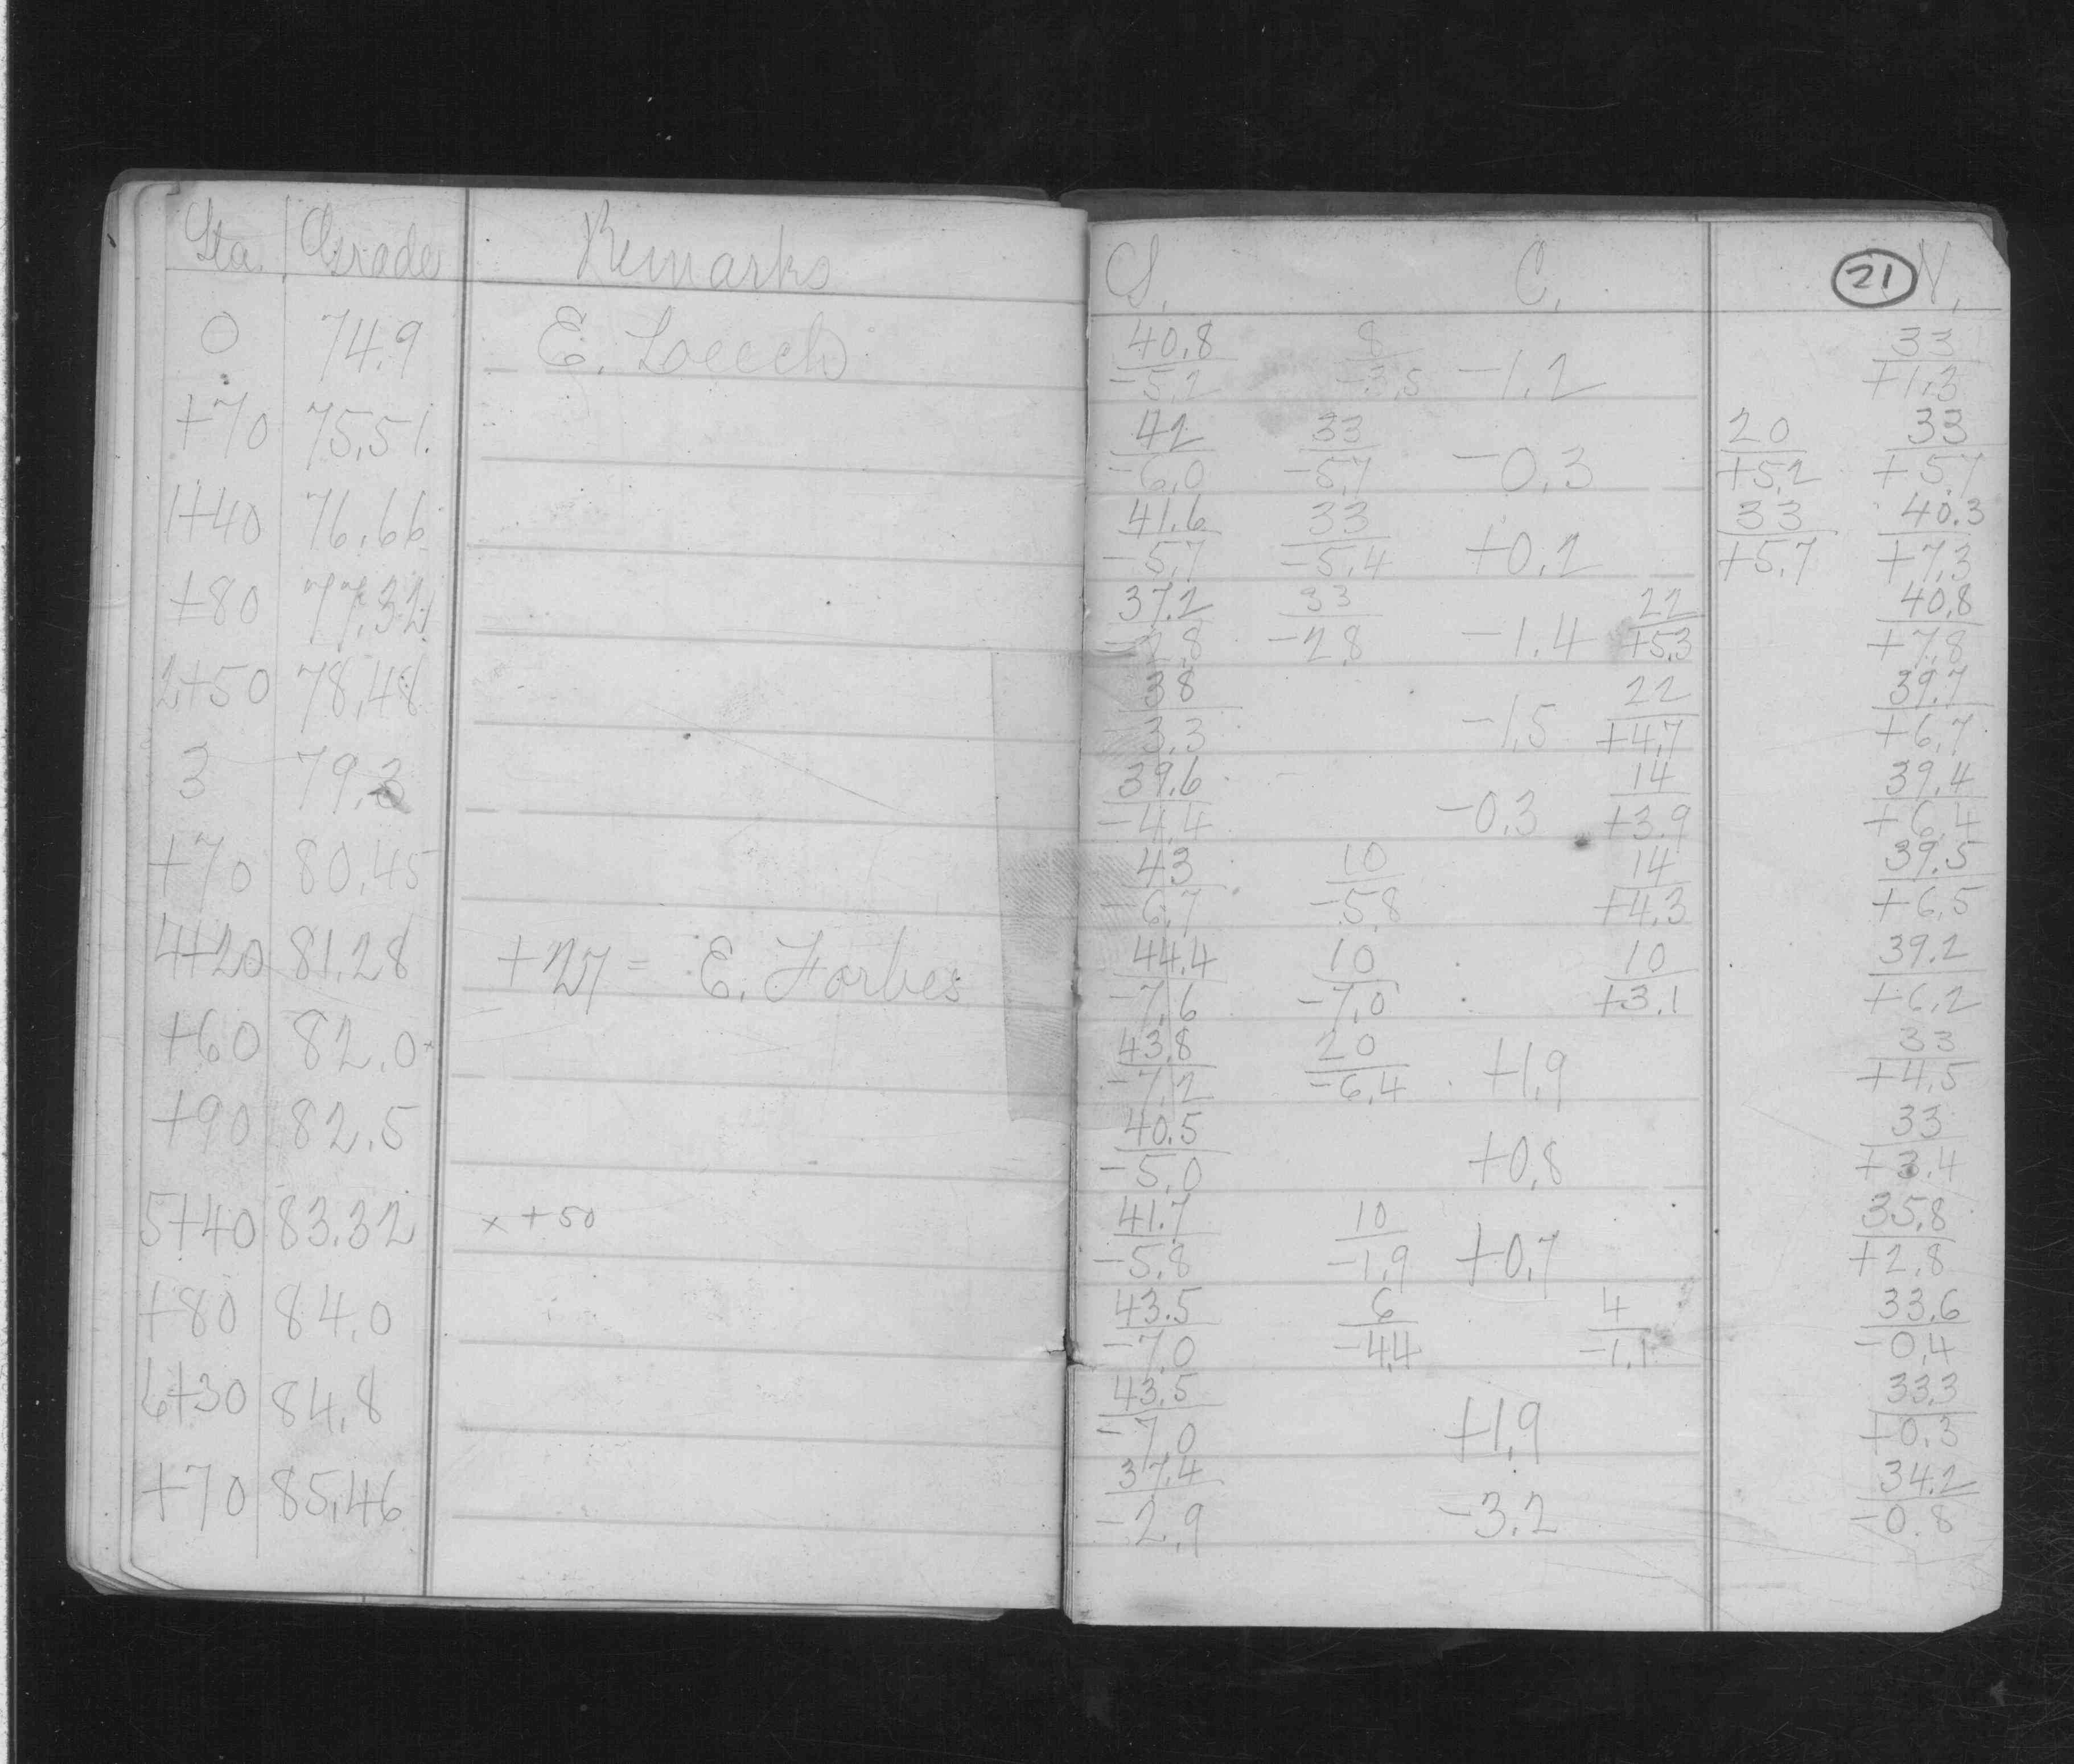 Sta. Grade Remarks S. C. 21 N.
0 74.9 E. 40.8 8 33
-5.2 -3.5 -1.2 +1.3
+70 75.51 42 33 20 33
-6.0 -5.7 -0.3 +5.2 +5.7
1+40 76.66 41.6 33 33 40.3
-5.7 -5.4 +0.2 +5.7 +7.3
+80 77.32 37.2 33 22 40.8
-2.8 -2.8 -1.4 +5.3 +7.8
2+50 78.48 38 22 39.7
3.3 -1.5 +4.7 +6.7
3 79.3 39.6 14 39.4
-4.4 -0.3 +3.9 +6.4
+70 80.45 43 10 14 39.5
-6.7 -5.8 +4.3 +6.5
4+20 81.28 +27 = E. Forbes 44.4 10 10 39.2
-7.6 -7.0 +3.1 +6.2
+60 82.0 43.8 20 33
-7.2 -6.4 +1.9 +4.5
+90 82.5 40.5 33
-5.0 +0.8 +3.4
5+40 83.32 x +50 41.7 10 35.8
-5.8 -1.9 +0.7 +2.8
+80 84.0 43.5 6 4 33.6
-7.0 -4.4 -1.1 -0.4
6+30 84.8 43.5 33.3
-7.0 +1.9 +0.3
+70 85.46 37.4 34.2
-2.9 -3.2 -0.8